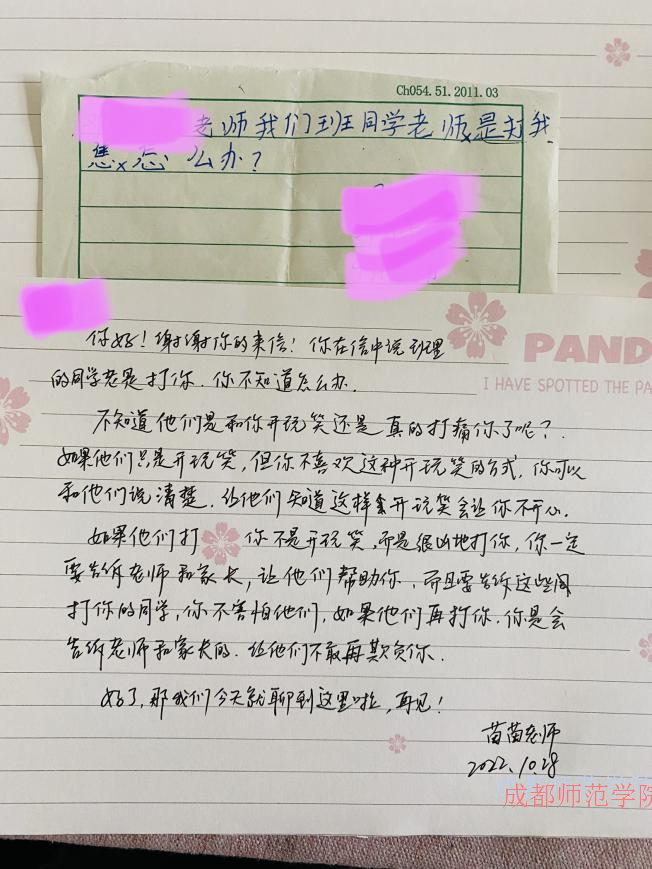 Ch054.51.2011.03
老师我们班同学老师是打我
怎么办?
PAND
I HAVE SPOTTED THE PA
你好!谢谢你的来信!你在信中说班里
的同学老是打你.你不知道怎么办.
不知道他们是和你开玩笑还是真的打痛你了呢?.
如果他们只是开玩笑,但你不喜欢这种开玩笑的方式,你可以
和他们说清楚.让他们知道这样开玩笑会让你不开心.
如果他们打你不是开玩笑,而是很凶地打你,你一定
要告诉老师和家长,让他们帮助你,而且要告诉这些
打你的同学,你不害怕他们,如果他们再打你.你是会
告诉老师和家长的.让他们不敢再欺负你.
好了,那我们今天就聊到这里啦,再见!
苗苗老师
2022.10.28
成都师范学院